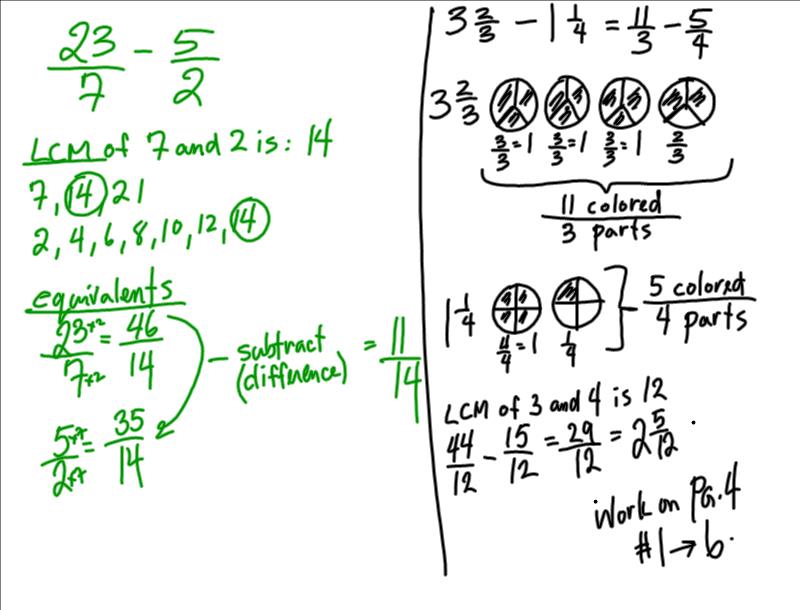 23/7 - 5/2
LCM of 7 and 2 is: 14
7, 14, 21
2, 4, 6, 8, 10, 12, 14
equivalents
23×2/7×2 = 46/14
- subtract (difference) = 11/14
5×7/2×7 = 35/14
3 2/3 - 1 1/4 = 11/3 - 5/4
3 2/3
3/3 = 1 3/3 = 1 3/3 = 1 2/3
11 colored
3 parts
1 1/4
4/4 = 1 1/4
5 colored
4 parts
LCM of 3 and 4 is 12
44/12 - 15/12 = 29/12 = 2 5/12
Work on Pg. 4
#1→6